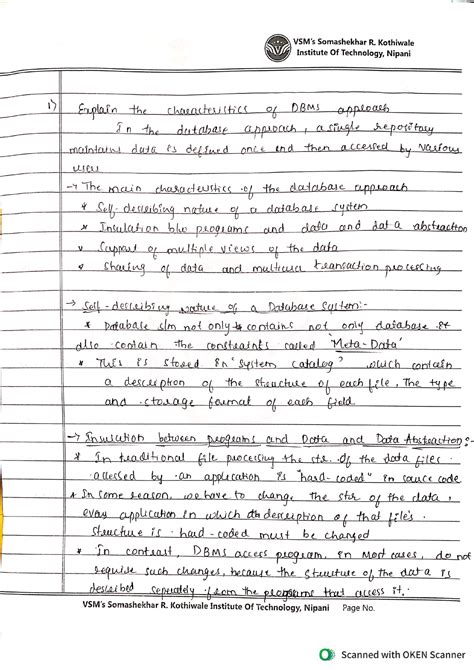 VSM's Somashekhar R. Kothiwale
Institute Of Technology, Nipani
1) Explain the characteristics of DBMS approach
In the database approach, a single repository
maintains data is defined once and then accessed by various
user
→ The main characteristics of the database approach
* Self-describing nature of a database system
* Insulation b/w programs and data and data abstraction
* Support of multiple views of the data
* Sharing of data and multiuser transaction processing
→ Self-describing Nature of a Database System:-
* Database s/m not only contains not only database it
also contain the constraints called 'Meta-Data'
* This is stored in 'system catalog' which contain
a description of the structure of each file, The type
and storage format of each field.
→ Insulation between programs and Data and Data Abstraction:-
* In traditional file processing the str. of the data files
accessed by an application is "hard-coded" in source code
* In some reason, we have to change the str of the data,
every application in which description of that file's
structure is hard-coded must be changed
* In contrast, DBMS access program, in most cases, do not
require such changes, because the structure of the data is
described seperately from the programs that access it.
VSM's Somashekhar R. Kothiwale Institute Of Technology, Nipani Page No.
Scanned with OKEN Scanner